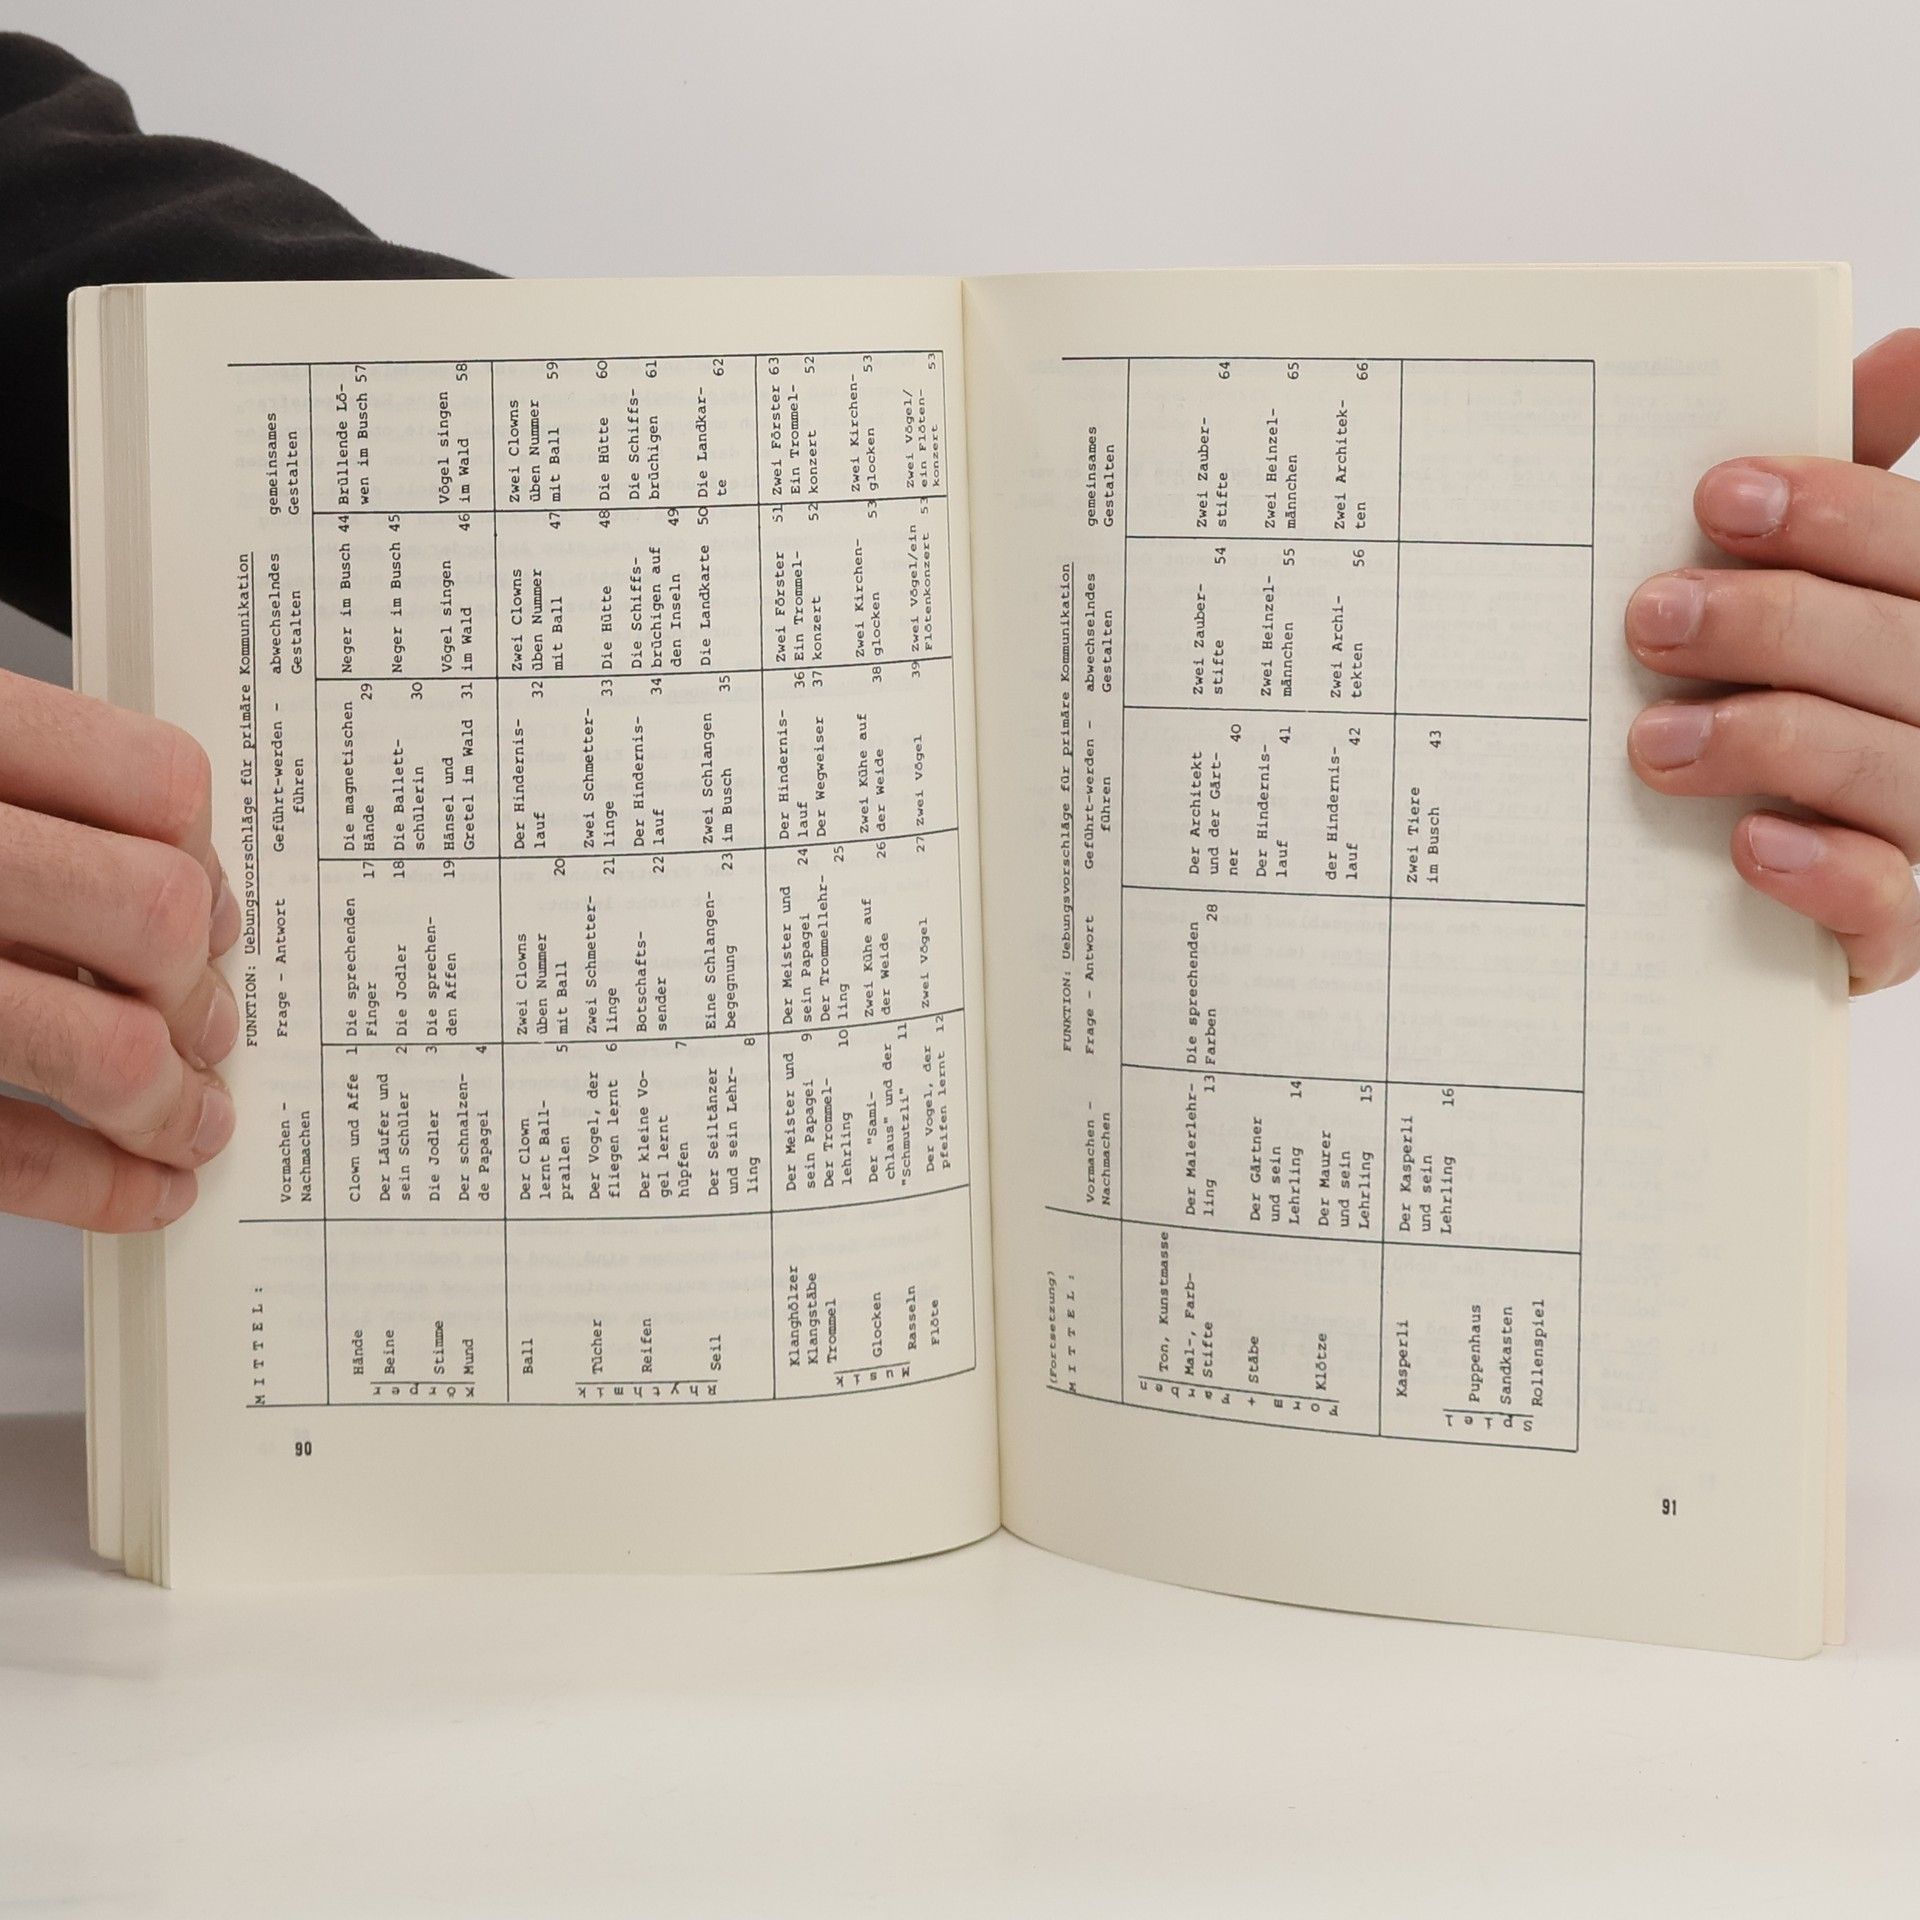 FUNKTION: Uebungsvorschläge für primäre Kommunikation
MITTEL:
Vormachen -
Nachmachen
Frage - Antwort
Geführt-werden -
führen
abwechselndes
Gestalten
gemeinsames
Gestalten
Körper
Hände
Beine
Stimme
Mund
Clown und Affe 1
Der Läufer und 2
sein Schüler
Die Jodler 3
Der schnalzen- 4
de Papagei
Die sprechenden 17
Finger
Die Jodler 18
Die sprechen- 19
den Affen
Die magnetischen
Hände 29
Die Ballett-
schülerin 30
Hänsel und
Gretel im Wald 31
Neger im Busch 44
Neger im Busch 45
Vögel singen
im Wald 46
Brüllende Lö-
wen im Busch 57
Vögel singen
im Wald 58
Rhythmik
Ball
Tücher
Reifen
Seil
Der Clown
lernt Ball-
prallen 5
Der Vogel, der
fliegen lernt 6
Der kleine Vo-
gel lernt
hüpfen 7
Der Seiltänzer
und sein Lehr-
ling 8
Zwei Clowns
üben Nummer
mit Ball 20
Zwei Schmetter-
linge 21
Botschafts-
sender 22
Eine Schlangen-
begegnung 23
Der Hindernis-
lauf 32
Zwei Schmetter-
linge 33
Der Hindernis-
lauf 34
Zwei Schlangen
im Busch 35
Zwei Clowns
üben Nummer
mit Ball 47
Die Hütte 48
Die Schiffs-
brüchigen auf
den Inseln 49
Die Landkarte 50
Zwei Clowns
üben Nummer
mit Ball 59
Die Hütte 60
Die Schiffs-
brüchigen 61
Die Landkar-
te 62
Musik
Klanghölzer
Klangstäbe
Trommel
Glocken
Rasseln
Flöte
Der Meister und
sein Papagei 9
Der Trommel-
lehrling 10
Der "Sami-
chlaus" und der
"Schmutzli" 11
Der Vogel, der
pfeifen lernt 12
Der Meister und
sein Papagei 24
Der Trommellehr-
ling 25
Zwei Kühe auf
der Weide 26
Zwei Vögel 27
Der Hindernis-
lauf 36
Der Wegweiser 37
Zwei Kühe auf
der Weide 38
Zwei Vögel 39
Zwei Förster 51
Ein Trommel-
konzert 52
Zwei Kirchen-
glocken 53
Zwei Vögel/ein
Flötenkonzert 53
Zwei Förster 63
Ein Trommel-
konzert 52
Zwei Kirchen-
glocken 53
Zwei Vögel/
ein Flöten-
konzert 53
90
(Fortsetzung)
FUNKTION: Uebungsvorschläge für primäre Kommunikation
MITTEL:
Vormachen -
Nachmachen
Frage - Antwort
Geführt-werden -
führen
abwechselndes
Gestalten
gemeinsames
Gestalten
Form + Farben
Ton, Kunstmasse
Mal-, Farb-
Stifte
Stäbe
Klötze
Der Malerlehr-
ling 13
Der Gärtner
und sein
Lehrling 14
Der Maurer
und sein
Lehrling 15
Die sprechenden
Farben 28
Der Architekt
und der Gärt-
ner 40
Der Hindernis-
lauf 41
der Hindernis-
lauf 42
Zwei Zauber-
stifte 54
Zwei Heinzel-
männchen 55
Zwei Archi-
tekten 56
Zwei Zauber-
stifte 64
Zwei Heinzel-
männchen 65
Zwei Architek-
ten 66
Spiel
Kasperli
Puppenhaus
Sandkasten
Rollenspiel
Der Kasperli
und sein
Lehrling 16
Zwei Tiere
im Busch 43
91